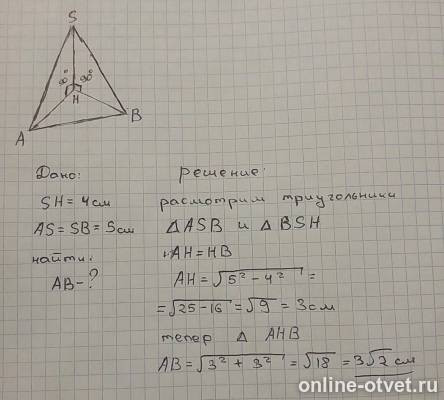 S
90° 90°
H
B
A
Дано:
SH = 4 см
AS = SB = 5 см
найти:
AB - ?
Решение:
расмотрим триугольники
Δ ASB и Δ BSH
AH = HB
AH = √5² - 4² =
= √25 - 16 = √9 = 3 см
тепер Δ AHB
AB = √3² + 3² = √18 = 3√2 см
online-otvet.ru